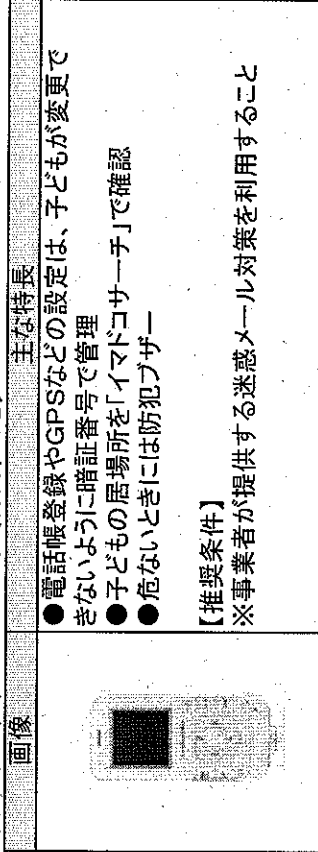 画像
主な特長
●電話帳登録やGPSなどの設定は、子どもが変更で
きないように暗証番号で管理
●子どもの居場所を「イマドコサーチ」で確認
●危ないときには防犯ブザー
【推奨条件】
※事業者が提供する迷惑メール対策を利用すること